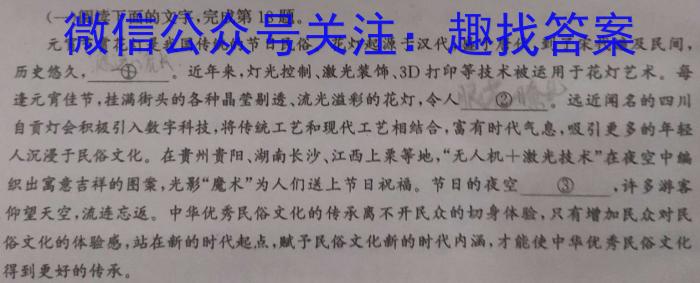 (一)阅读下面的文字,完成第18题。
微信公众号关注:趣找答案
元宵赏花灯是我国传统的节日民俗。花灯起源于汉代
及民间,
历史悠久,①。近年来,灯光控制、激光装饰、3D打印等技术被运用于花灯艺术。每
逢元宵佳节,挂满街头的各种晶莹剔透、流光溢彩的花灯,令人②。远近闻名的四川
自贡灯会积极引入数字科技,将传统工艺和现代工艺相结合,富有时代气息,吸引更多的年轻
人沉浸于民俗文化。在贵州贵阳、湖南长沙、江西上栗等地,“无人机+激光技术”在夜空中编
织出寓意吉祥的图案,光影“魔术”为人们送上节日祝福。节日的夜空③,许多游客
仰望天空,流连忘返。中华优秀民俗文化的传承离不开民众的切身体验,只有增加民众对民
俗文化的体验感,站在新的时代起点,赋予民俗文化新的时代内涵,才能使中华优秀民俗文化
得到更好的传承。